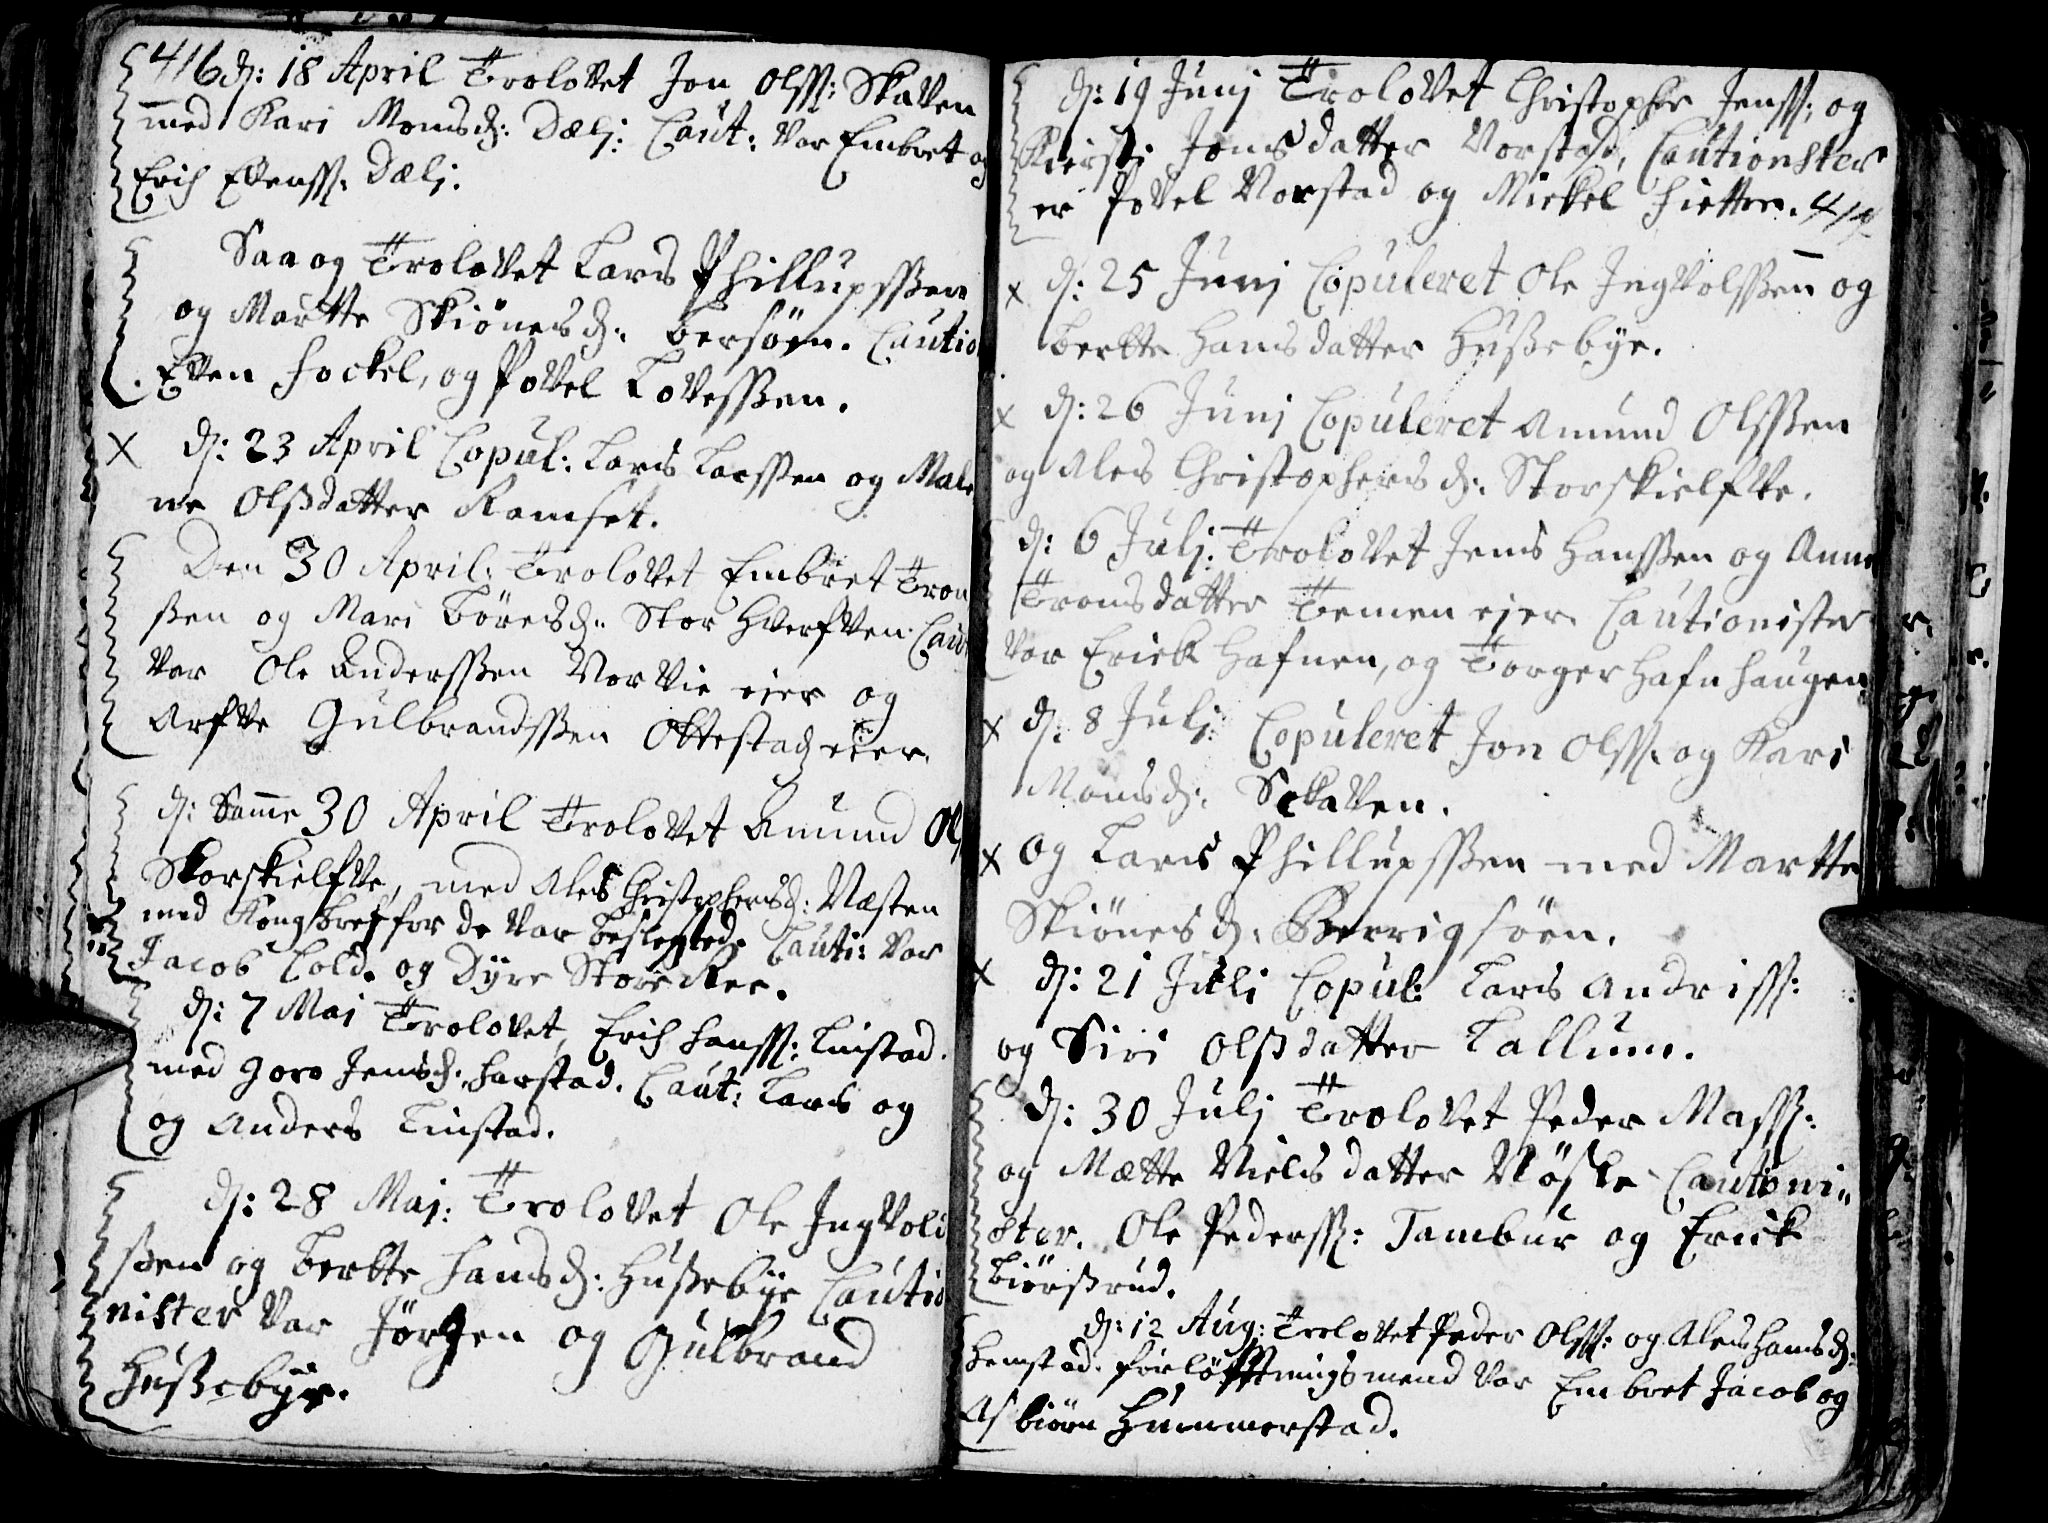 416 d: 18 April Trolovet Jon Olss: Skaven
med Kari Momsd: Dælj: Caut: var Embret og
Erich Evenss: Dælj.
Saa og Trolovet Lars Phillupsßen
og Martte Skiönesd: Bersöen. Cautio
Even Hockel, og Povel Lovessßen.
d: 23 April Copul: Lars Larsßen og Male
ne Olßdatter Ramset.
Den 30 April: Trolovet Embret Tron
ßen og Mari Börresd: Stor Hverfven: Caut
var Ole Andersßen Norvie eier og
Arfve Gulbrandsßen Ottestad eier.
d: Samme 30 April Trolovet Amund Ols
Storskielfve, med Ales Christophersd: Næsten
med Kongsbref for de var beslegted. Cauti: var
Jacob Cold. og Dyre Store Ree.
d: 7 Maj Trolovet, Erich Hanss: Linstad.
med Goro Jensd: Harstad. Caut: Lars og
og Anders Linstad.
d: 28 Maj: Trolovet Ole Ingvold
sßen og Bertte Hansd: Hußebye Cautio
nister var Jörgen og Gulbrand
Hußebye.
d: 19 Junj Trolovet Christopher Jenss: og
Kiersti Jonsdatter Vorstad, Cautionster
er Povel Vorstad og Mickel Hietten. 417
d: 25 Junj Copuleret Ole Ingvolsßen og
Bertte Hansdatter Hußebye.
d: 26 Junj Copuleret Amund Olsßen
og Ales Christophersd: Storskielfve.
d: 6 Julj: Trolovet Jens Hansßen og Anne
Tronsdatter Temen eier Cautionister
var Erick Hafnen, og Torger Hafn haugen
d: 8 Julj: Copuleret Jon Olss: og Kari
Monsd: Sckaven.
og Lars Phillupsßen med Martte
Skiönesd: Berrigsöen.
d: 21 Juli Copul: Lars Andriss:
og Siri Olßdatter Lallum.
d: 30 Julj Trolovet Peder Masß:
og Mætte Nielsdatter Nøsle Cautioni=
ster. Ole Pederss: Tambur og Erick
Biörßrud.
d: 12 Aug: Trolovet Peder Olss: og Ales Hansd:
Hemstad. forløfftningsmend var Embret Jacob og
Asbiörn Hummerstad.